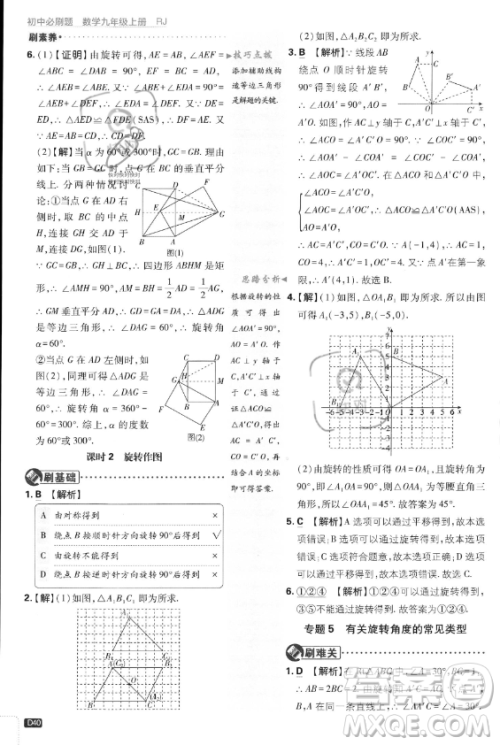 初中必刷题 数学九年级上册 RJ
刷素养
6. (1)【证明】由旋转可得，AE = AB，∠AEF =
∠ABC = ∠DAB = 90°，EF = BC = AD，
∴ ∠AEB = ∠ABE. 又∵ ∠ABE + ∠EDA = 90° =
∠AEB + ∠DEF，∴ ∠EDA = ∠DEF. 又∵ DE =
ED，∴ △AED ≌ △FDE(SAS)，∴ DF = AE. 又
∵ AE = AB = CD，∴ CD = DF.
(2)【解】当 α 为 60°或 300°时，GC = GB. 理由
如下：当 GB = GC 时，点 G 在 BC 的垂直平分
线上，分两种情况讨
论：①当点 G 在 AD 右
侧时，取 BC 的中点
H，连接 GH 交 AD 于
M，连接 DG，如图(1).
∵ GC = GB，
∴ GH⊥BC，∴ 四边形 ABHM 是矩
形，∴ AM = BH = 1/2 AD = 1/2 AG，
∴ GM 垂直平分 AD，∴ GD = GA = DA，∴ △ADG
是等边三角形，∴ ∠DAG = 60°，∴ 旋转角
α = 60°.
②当点 G 在 AD 左侧时，如
图(2)，同理可得△ADG 是
等边三角形，∴ ∠DAG =
60°，∴ 旋转角 α = 360° -
60° = 300°.
图(1)
图(2)
课时 2 旋转作图
刷基础
1. B 【解析】
A 由对称得到 ×
B 绕点 B 按顺时针方向旋转 90°后得到 √
C 由旋转不能得到 ×
D 绕点 B 按逆时针方向旋转 90°后得到 ×
2.【解】(1)如图所示，△A₁B₁C₁ 即为所求.
D40
技巧点拨
添加辅助线构
造等边三角形
是解题的关键.
思路分析
根据旋转的性
质可得出
∠AOA' = 90°，
AO = A'O. 作
AC⊥y 轴于
C，A'C'⊥x 轴于
(2)如图所示，△A₂B₂C₂ 即为所求.
3. B 【解析】∵ 线段 AB
绕点 O 顺时针旋转
90°得到线段 A'B'，
∴ ∠AOA' = 90°，AO = A'O.
如图，作 AC⊥y 轴于 C，A'C'⊥x 轴于 C'，
∴ ∠ACO = ∠A'C'O = 90°. ∵ ∠COC' = 90°，
∴ ∠AOA' - ∠COA' = ∠COC' - ∠COA'，
∴ ∠AOC = ∠A'OC'. 在△ACO 和△A'C'O 中，
∠ACO = ∠A'C'O，
∠AOC = ∠A'OC'，
AO = A'O，
∴ △ACO ≌ △A'C'O(AAS)，
∴ AC = A'C'，CO = C'O. ∵ A(-1，4)，∴ AC = 1，
CO = 4，∴ A'C' = 1，OC' = 4. ∵ 点 A'在第一象
限，∴ A'(4，1). 故选 B.
4.【解】(1)如图，△OA₁B₁ 即为所求. 所以由图
可得 A₁(-3，5)，B₁(-5，0).
(2)由旋转的性质可得 OA = OA₁，且旋转角为
90°，即∠AOA₁ = 90°，∴ △OAA₁ 为等腰直角三
角形，∴ ∠OAA₁ = 45°. 故答案为 45°.
5. C 【解析】A 选项可以通过平移得到，故本选
项错误；B 选项可以通过平移得到，故本选项
错误；C 选项符合题意，故本选项正确；D 选项
可以通过平移得到，故本选项错误. 故选 C.
6. ①②④ 【解析】①②④可以通过旋转得到，
③可以通过平移得到. 故答案为①②④.
专题 5 有关旋转角度的常见类型
刷难关
∴ AB = 2BC